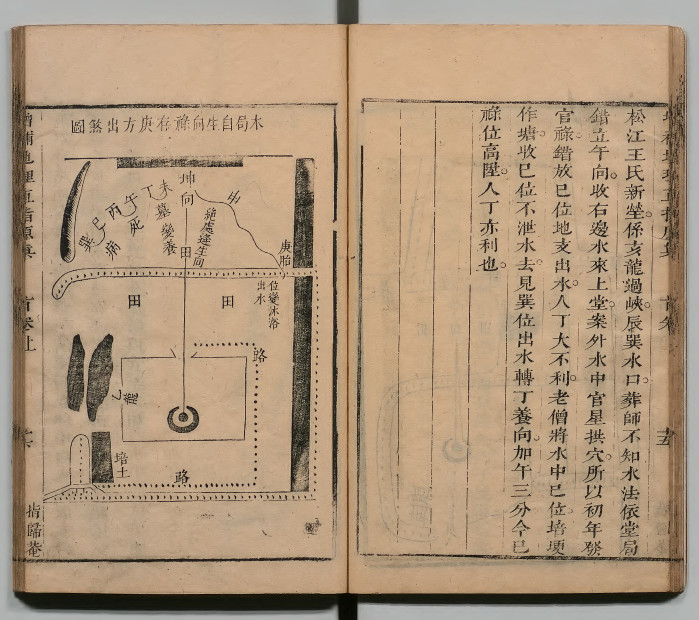 松江王氏新塋係亥龍過峽辰巽水口葬師不知水法依堂局
錯立午向收右邊水來上堂案外水中官星拱穴所以初年發
官祿錯放巳位地支出水人丁大不利老僧將水中巳位培埂
作塘收巳位不泄水去見巽位出水轉丁養向加午三分今已
祿位高陞人丁亦利也
木局自生向祿存庚方出煞圖
庚胎
位變沐浴
出水
申
坤向
絕處逢生向
未
墓變養
丁
午
死
丙
巳
病
巽
田
田
田
路
乙龍
培土
路
增補地理直指原真
首卷上
指歸菴